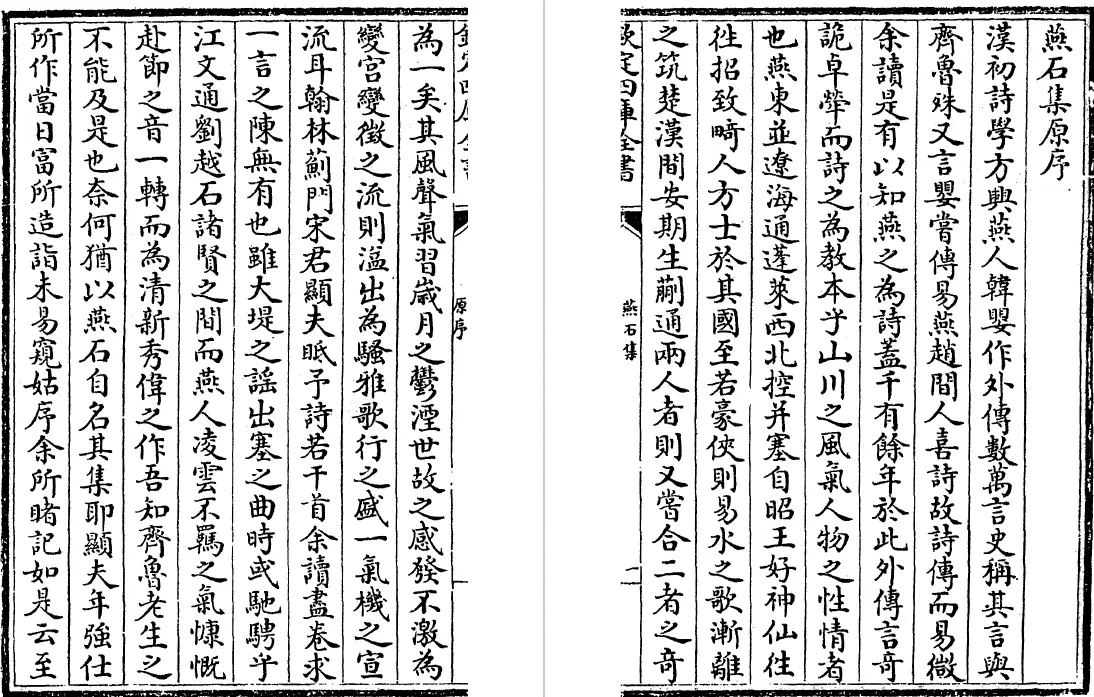 燕石集原序
漢初詩學方興燕人韓嬰作外傳數萬言史稱其言與
齊魯殊又言嬰嘗傳易燕趙間人喜詩故詩傳而易微
余讀是有以知燕之為詩蓋千有餘年於此外傳言竒
詭卓犖而詩之為教本乎山川之風氣人物之性情者
也燕東並遼海通蓬萊西北控并塞自昭王好神仙往
徃招致畸人方士於其國至若豪俠則易水之歌漸離
之筑楚漢間安期生蒯通兩人者則又嘗合二者之竒
欽定四庫全書
燕石集
一
欽定四庫全書
原序
為一矣其風聲氣習歳月之鬱湮世故之感發不激為
變宮變徴之流則溢出為騷雅歌行之盛一氣機之宣
流耳翰林薊門宋君顯夫眂予詩若干首余讀盡卷求
一言之陳無有也雖大堤之謡出塞之曲時或馳騁乎
江文通劉越石諸賢之間而燕人凌雲不羈之氣慷慨
赴節之音一轉而為清新秀偉之作吾知齊魯老生之
不能及是也奈何猶以燕石自名其集耶顯夫年強仕
所作當日富所造詣未易窺姑序余所睹記如是云至